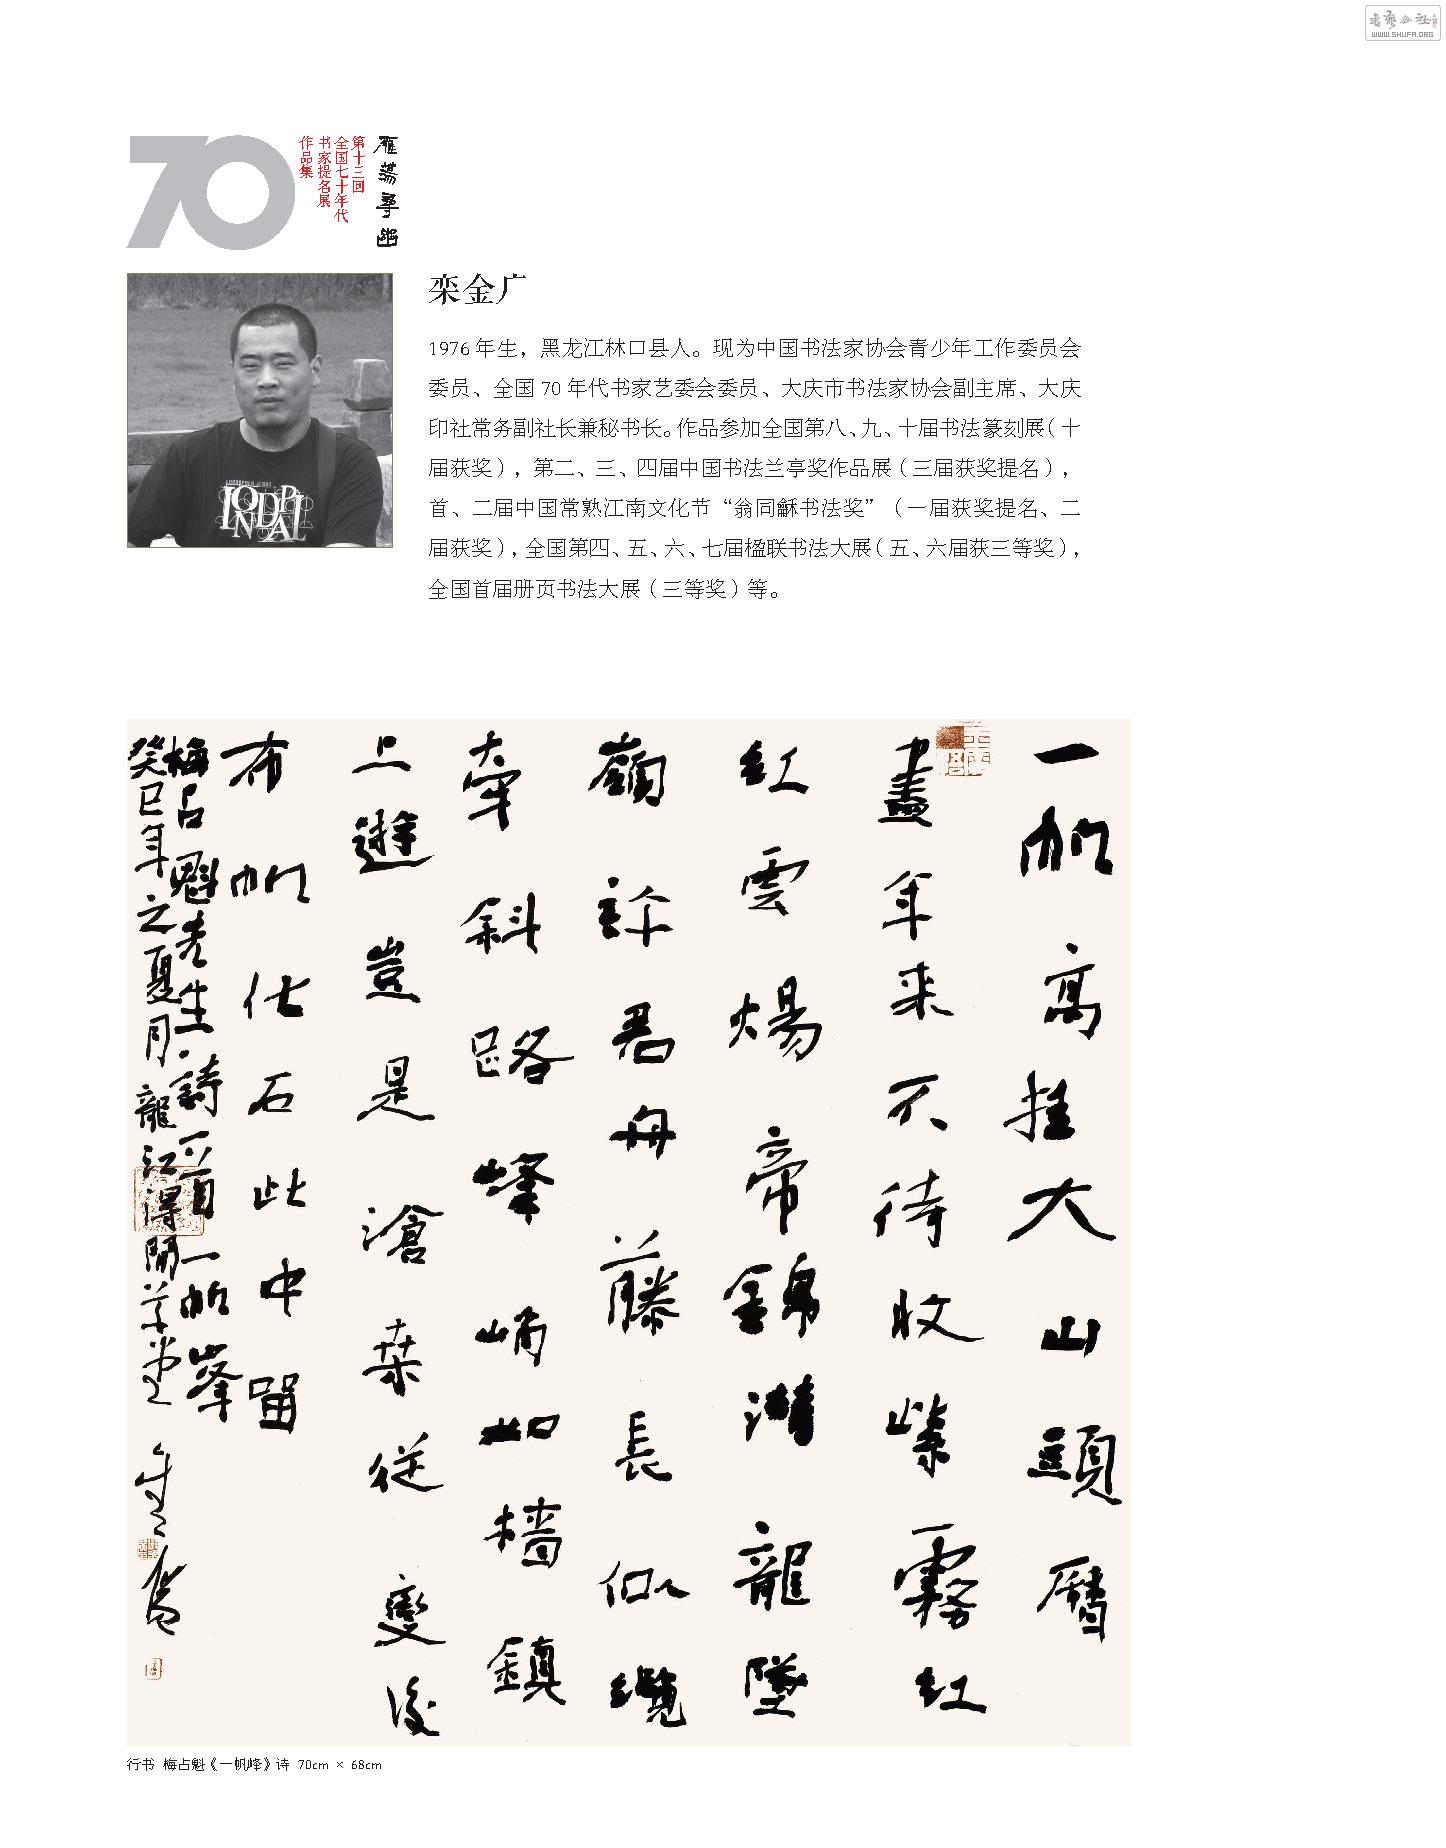 書藝公社
WWW.SHUFA.ORG
70
雁荡寻幽
第十三回
全国七十年代
书家提名展
作品集
栾金广
1976 年生，黑龙江林口县人。现为中国书法家协会青少年工作委员会
委员、全国 70 年代书家艺委会委员、大庆市书法家协会副主席、大庆
印社常务副社长兼秘书长。作品参加全国第八、九、十届书法篆刻展（十
届获奖），第二、三、四届中国书法兰亭奖作品展（三届获奖提名），
首、二届中国常熟江南文化节“翁同龢书法奖”（一届获奖提名、二
届获奖），全国第四、五、六、七届楹联书法大展（五、六届获三等奖），
全国首届册页书法大展（三等奖）等。
一帆高挂大山頭曆
盡年来不待收紫霧紅
紅雲煬帝錦龍墜
許君舟藤長似纜
牽斜路峰峭如檣鎮
上遊豈是滄桒從變後
布帆化石此中留
梅占魁先生詩一首一帆峯
癸巳年之夏月龍江得閒草堂金廣
行书 梅占魁《一帆峰》诗 70cm × 68cm